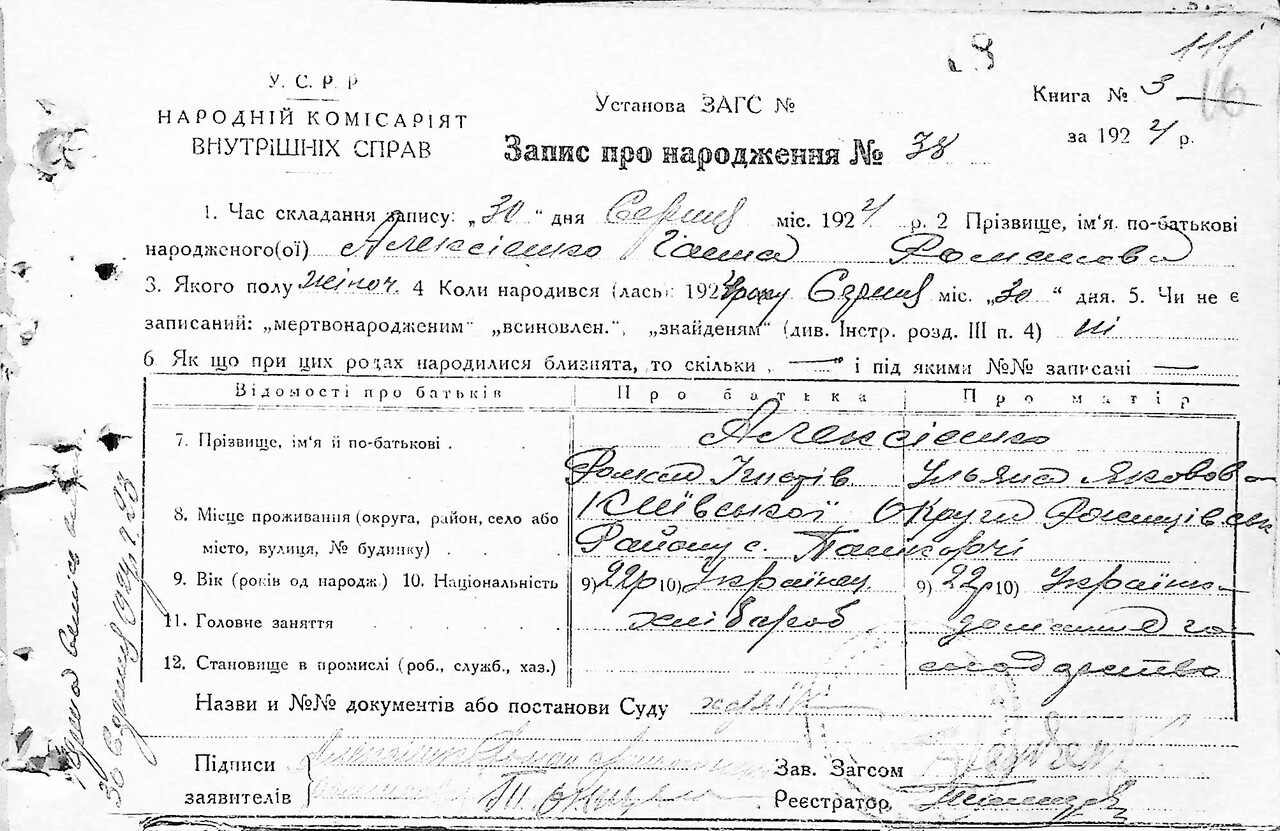 111
У. С. Р. Р
НАРОДНІЙ КОМІСАРІЯТ
ВНУТРІШНІХ СПРАВ
Установа ЗАГС №
Книга № 3
16
за 1924 р.
Запис про народження № 38
1. Час складання запису: „30" дня Серпня міс. 1924 р. 2 Прізвище, ім'я по-батькові
народженого(ої) Алексієнко Ганна Романова
3. Якого полу жіноч. 4 Коли народився (лась) 1924 року Серпня міс. „30" дня. 5. Чи не є
записаний: „мертвонародженим" „всиновлен.", „знайденям" (див. Інстр. розд. III п. 4) ні
6. Як що при цих родах народилися близнята, то скільки — і під якими №№ записані —
Відомості про батьків Про батька Про матір
7. Прізвище, ім'я й по-батькові . Алексієнко
Роман Ігнатів Ульяна Яковова
8. Місце проживання (округа, район, село або Київської Округи
місто, вулиця, № будинку) . . Району с.
9. Вік (років од народж.) 10. Національність 9) 22р 10) Українец 9) 22р 10) Українка
11. Головне заняття хлібароб домашнє го-
12. Становище в промислі (роб., служб., хаз.) сподарство
Назви и №№ документів або постанови Суду
Підписи Алексієнко Роман Зав. Загсом
заявителів Реєстратор,
30 Серпня 1924 р. №